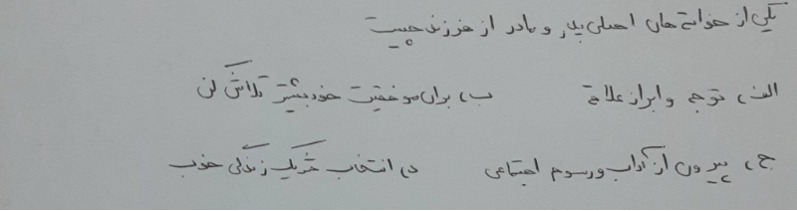 یکی از خواسته های اصلی پدر و مادر از فرزند چیست
الف، توجه و ابراز علاقه ب، برای موفقیت خود بیشتر تلاش کن
ج، پیروی از آداب و رسوم اجتماعی د، انتخاب شریک زندگی خوب